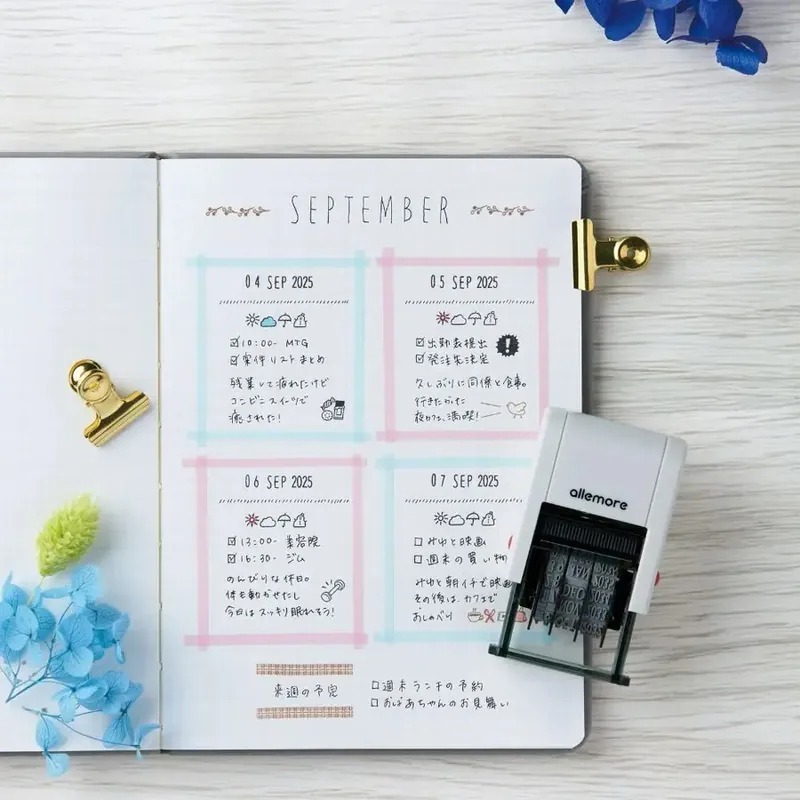 SEPTEMBER
04 SEP 2025
☑10:00- MTG
☑案件リストまとめ
残業して疲れたけど
コンビニスイーツで
癒された!
05 SEP 2025
☑出勤表提出
☑発注先決定
久しぶりに同僚と食事。
行きたかった
夜カフェ、満喫!
06 SEP 2025
☑13:00- 美容院
☑16:30- ジム
のんびりな休日。
体も動かせたし
今日はスッキリ眠れそう!
07 SEP 2025
☐みゆと映画
☐週末の買い物
みゆと朝イチで映画
その後は、カフェで
おしゃべり
来週の予定
☐週末ランチの予約
☐おばあちゃんのお見舞い
allemore